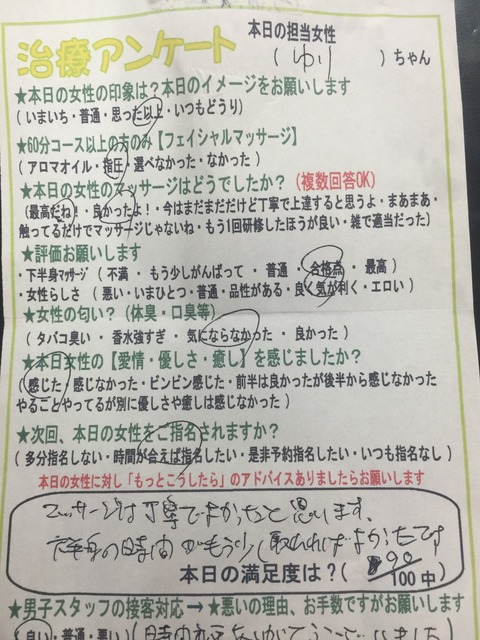 治療アンケート
本日の担当女性
( ゆり )ちゃん
★本日の女性の印象は?本日のイメージをお願いします
(いまいち・普通・思った以上・いつもどうり)
★60分コース以上の方のみ【フェイシャルマッサージ】
(アロマオイル・指圧・選べなかった・なかった)
★本日の女性のマッサージはどうでしたか? (複数回答OK)
(最高だね!・良かったよ!・今はまだまだだけど丁寧で上達すると思うよ・まあまあ・
触ってるだけでマッサージじゃないね・もう1回研修したほうが良い・雑で適当だった)
★評価お願いします
・下半身マッサージ (不満 ・ もう少しがんばって ・ 普通 ・ 合格点 ・ 最高 )
・女性らしさ (悪い・いまひとつ・普通・品性がある・良く気が利く・エロい )
★女性の匂い? (体臭・口臭等)
( タバコ臭い ・ 香水強すぎ ・ 気にならなかった ・ 良かった )
★本日女性の【愛情・優しさ・癒し】を感じましたか?
(感じた・感じなかった・ビンビン感じた・前半は良かったが後半から感じなかった
やることやってるが別に優しさや癒しは感じなかった )
★次回、本日の女性をご指名されますか?
(多分指名しない・時間が合えば指名したい・是非予約指名したい・いつも指名なし )
本日の女性に対し「もっとこうしたら」のアドバイスありましたらお願いします
マッサージは丁寧でよかったと思います、
下半身の時間がもう少し取れればよかったです
本日の満足度は?( 90 /100中)
★男子スタッフの接客対応→★悪いの理由、お手数ですがお願いします
(良い・普通・悪い)